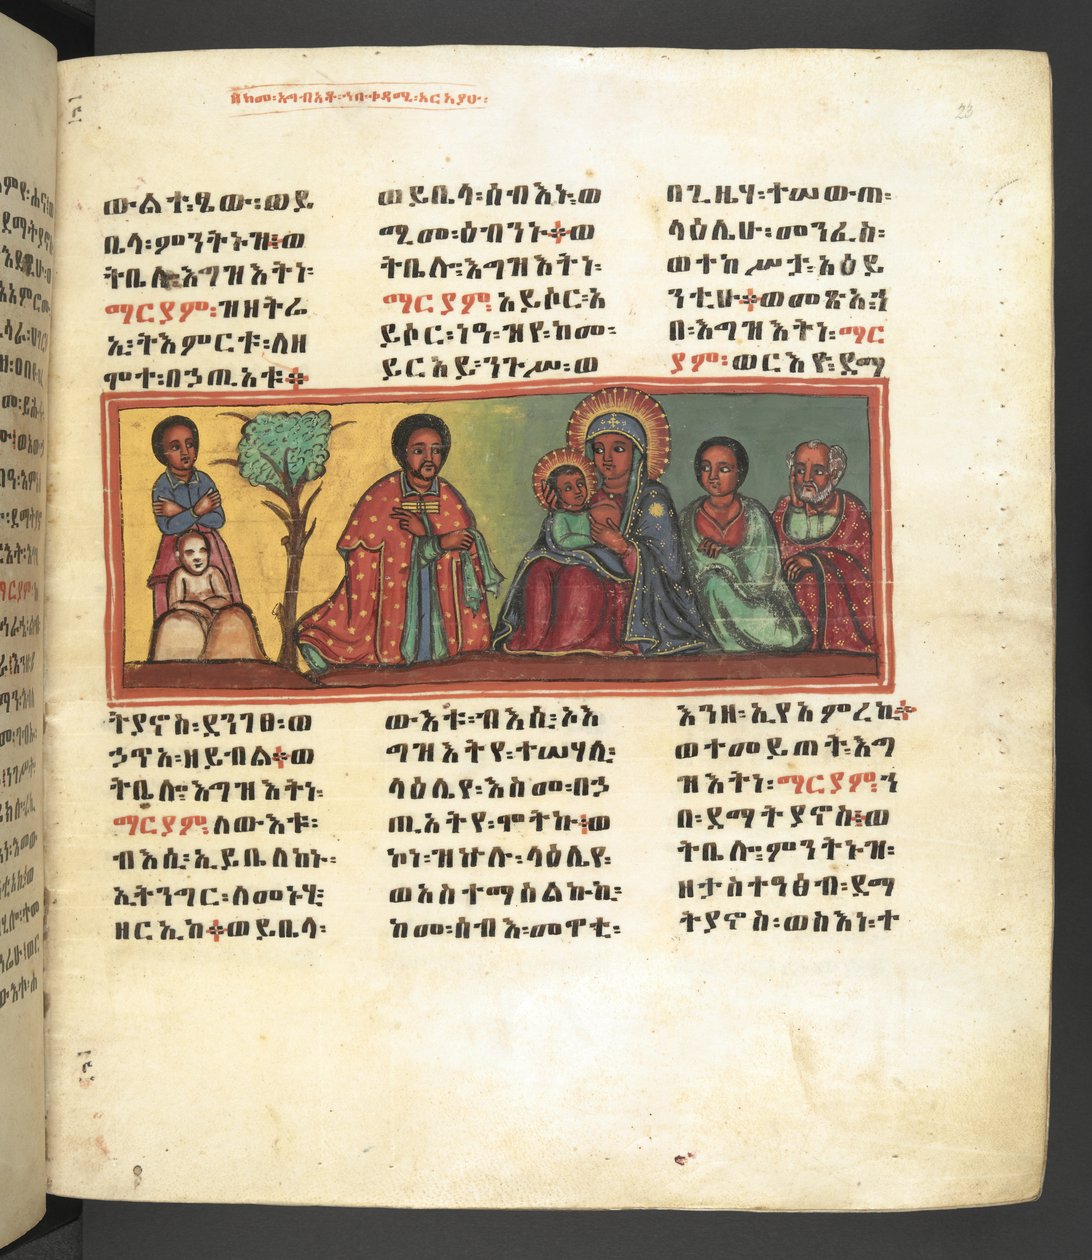 በከመ፡አግብአቶ፡ኀበ፡ቀዳሚ፡አርአያሁ፡
23
ውልተ፡ፄው፡ወይ
ቤላ፡ምንትኑዝ፡ወ
ትቤሎ፡እግዝእትነ፡
ማርያም፡ዝዘትሬ
ኢ፡ትእምርቱ፡ለዘ
ሞተ፡በኃጢአቱ።
ወይቤላ፡ሰብእኑ፡ወ
ሚመ፡ዕብንኑ።ወ
ትቤሎ፡እግዝእትነ፡
ማርያም፡አይሶር፡አ
ይሶር፡ነዓ፡ዝየ፡ከመ፡
ይርአይ፡ንጉሥ፡ወ
በጊዜሃ፡ተሠውጠ፡
ላዕሌሁ፡መንፈስ፡
ወተከሥታ፡አዕይ
ንቲሁ።ወመጽአ፡ኀ
በ፡እግዝእትነ፡ማር
ያም፡ወርእዮ፡ደማ
ትያኖስ፡ደንገፀ፡ወ
ኃጥአ፡ዘይብል።ወ
ትቤሎ፡እግዝእትነ፡
ማርያም፡ለውእቱ፡
ብእሲ፡ኢይቤለከኑ፡
ኢትንግር፡ለመኑሂ፡
ዘርኢከ።ወይቤላ፡
ውእቱ፡ብእሲ፡ኦእ
ግዝእትየ፡ተሣሃሊ፡
ላዕሌየ፡እስመ፡በኃ
ጢአትየ፡ሞትኩ፡ወ
ኮነ፡ዝኵሉ፡ላዕሌየ፡
ወአስተማሰልኩኪ፡
ከመ፡ሰብእ፡መዋቲ፡
እንዘ፡ኢየአምረኪ።
ወተመይጠት፡እግ
ዝእትነ፡ማርያም፡ኀ
በ፡ደማትያኖስ፡ወ
ትቤሎ፡ምንትኑዝ፡
ዘታስተዓፅብ፡ደማ
ትያኖስ፡ወስእነ፡ተ